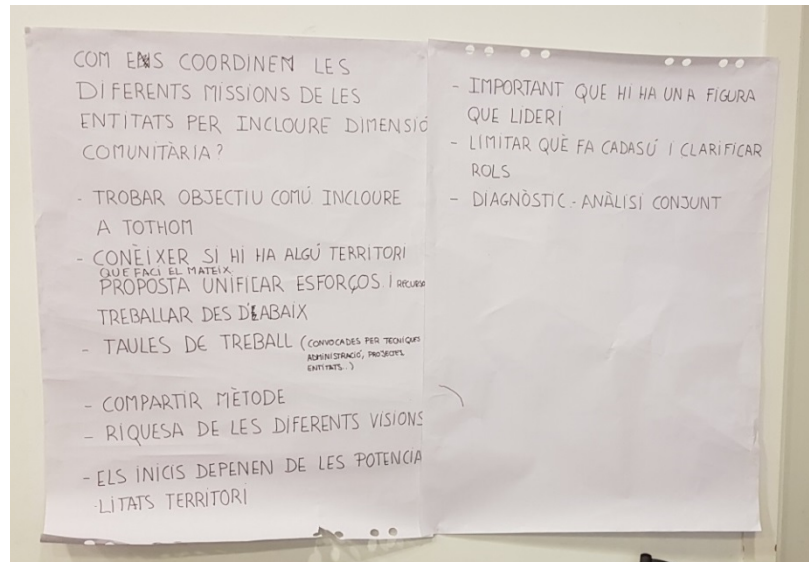 COM ENS COORDINEM LES
DIFERENTS MISSIONS DE LES
ENTITATS PER INCLOURE DIMENSIÓ
COMUNITÀRIA?
- TROBAR OBJECTIU COMÚ. INCLOURE
A TOTHOM
- CONÈIXER SI HI HA ALGÚ TERRITORI
QUE FACI EL MATEIX.
PROPOSTA UNIFICAR ESFORÇOS I RECURSOS
TREBALLAR DES D'ABAIX
- TAULES DE TREBALL (CONVOCADES PER TECNIQUES
ADMINISTRACIÓ, PROJECTES,
ENTITATS..)
- COMPARTIR MÈTODE
- RIQUESA DE LES DIFERENTS VISIONS
- ELS INICIS DEPENEN DE LES POTENCIA
-LITATS TERRITORI
- IMPORTANT QUE HI HA UNA FIGURA
QUE LIDERI
- LIMITAR QUÈ FA CADASÚ I CLARIFICAR
ROLS
- DIAGNÒSTIC - ANÀLISI CONJUNT